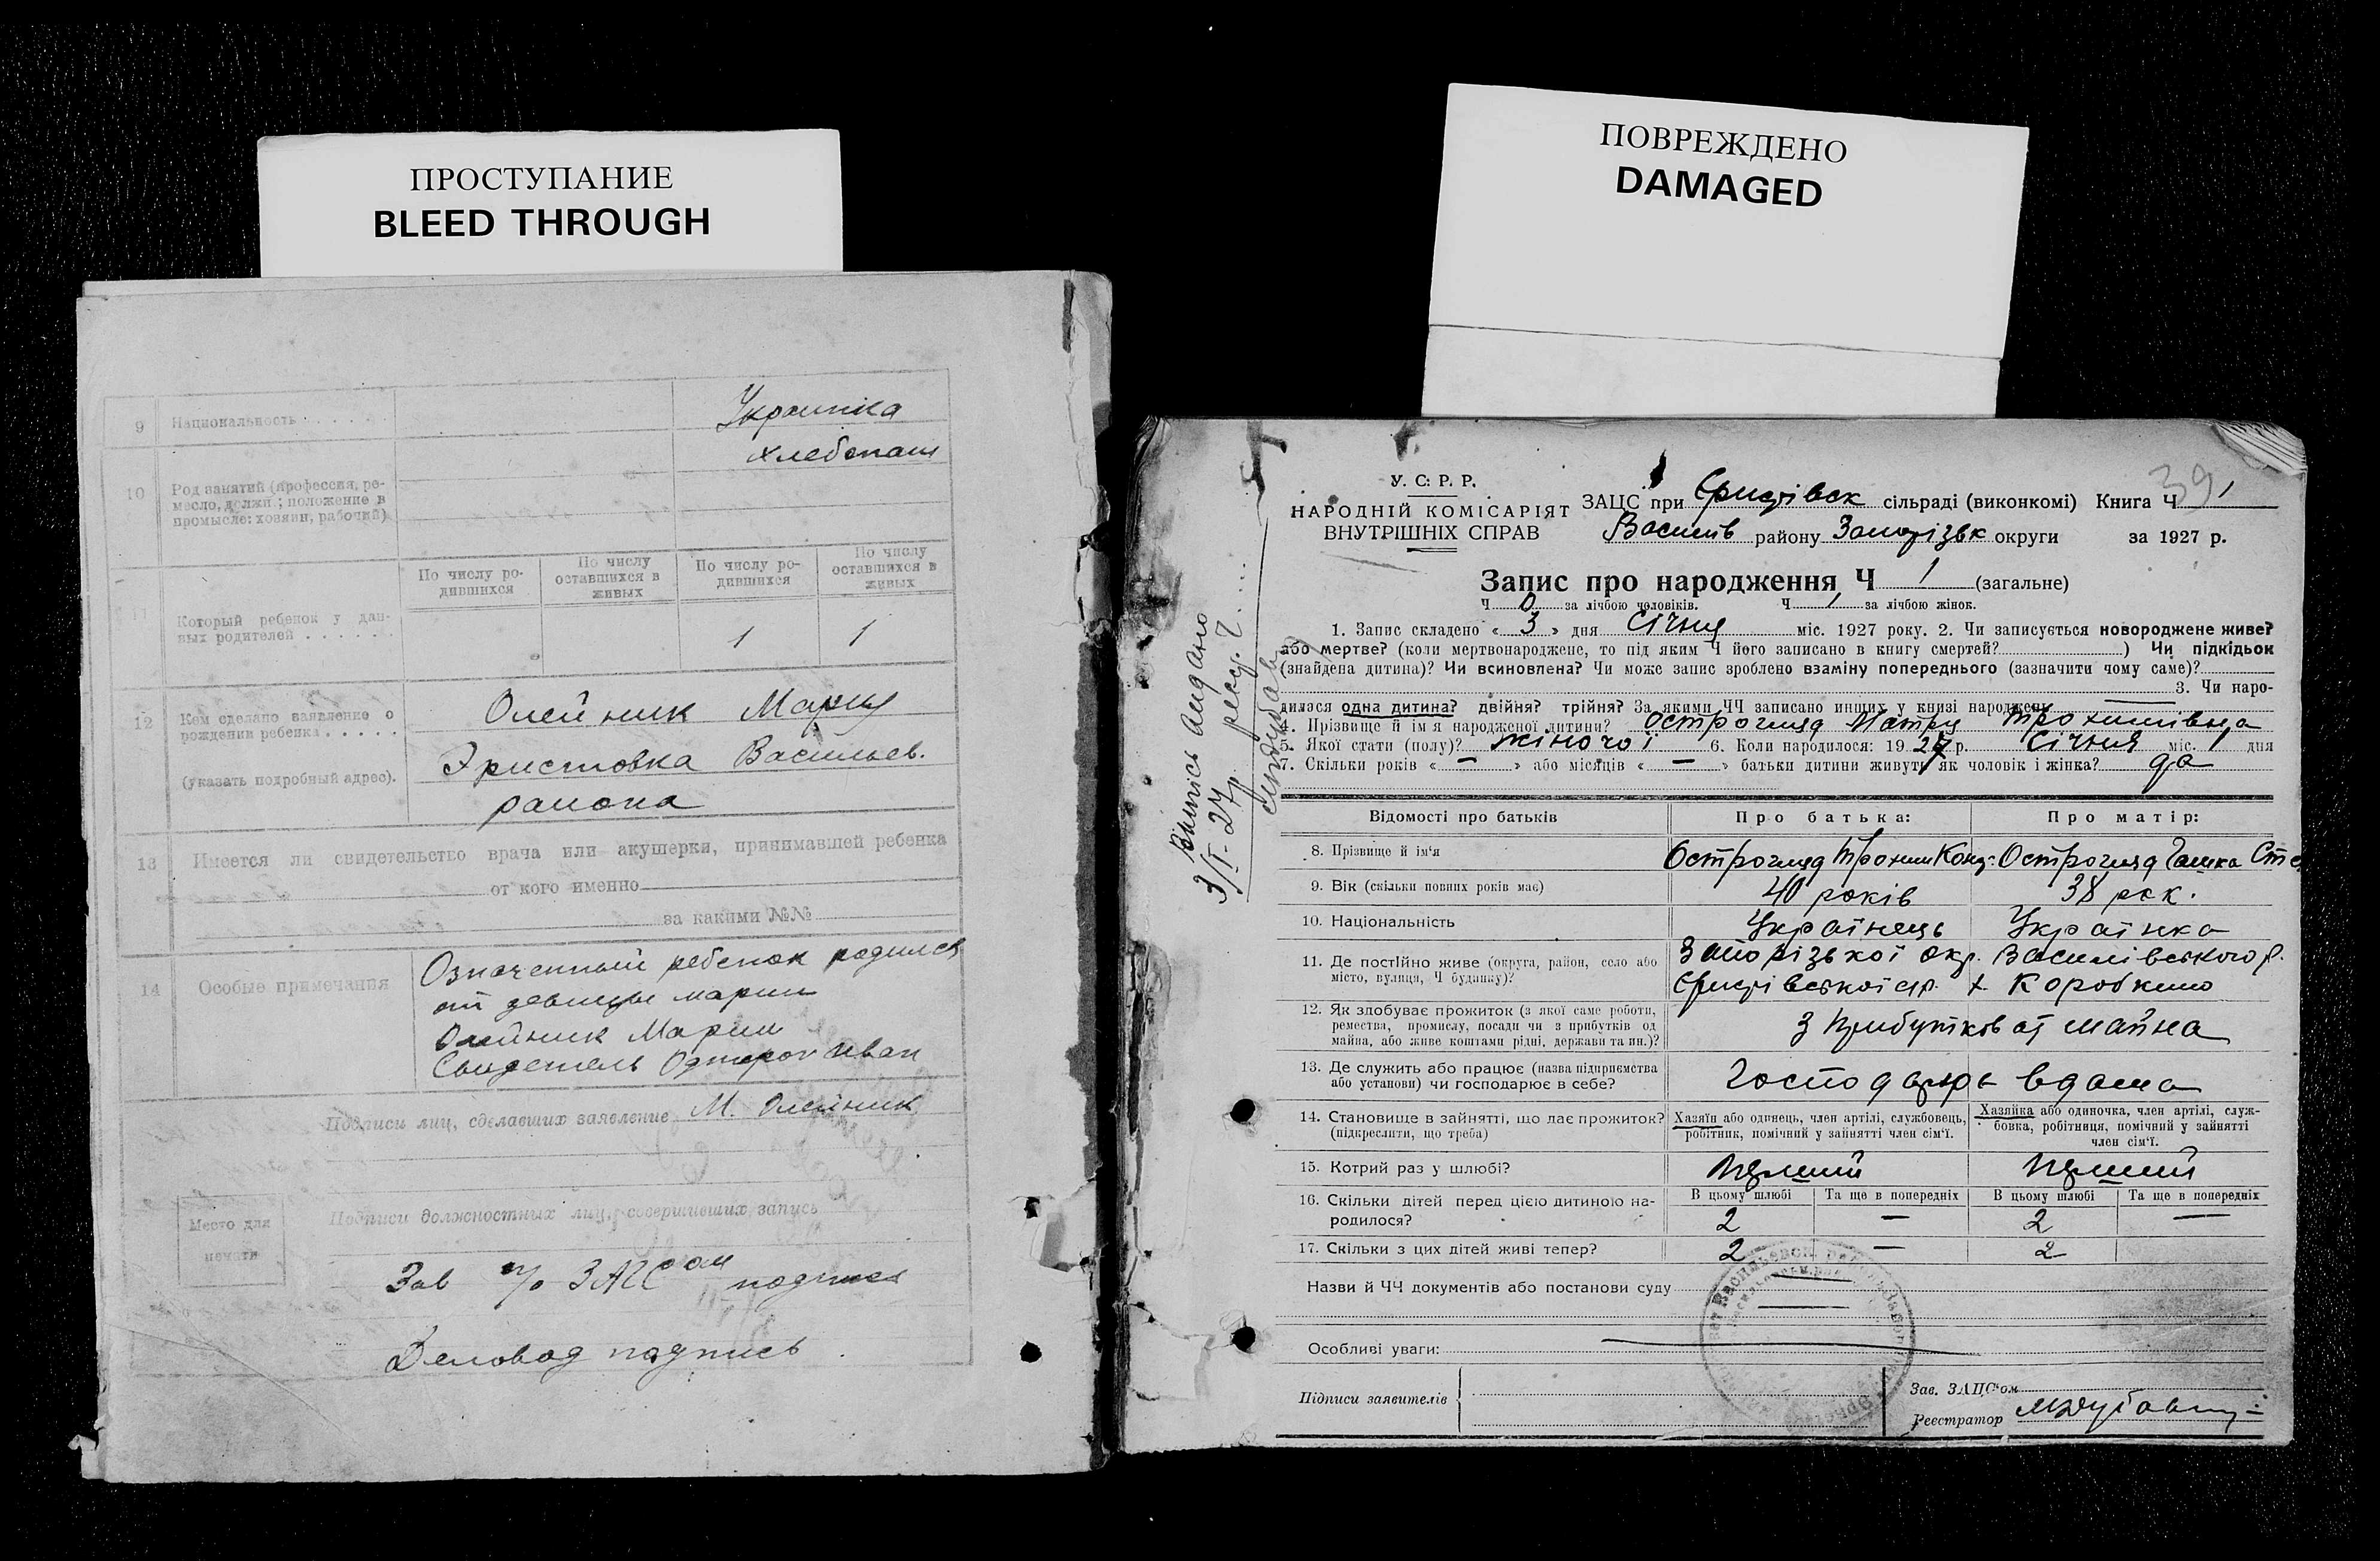 ПРОСТУПАНИЕ
BLEED THROUGH
9 Национальность Украинка
10 Род занятий (профессия, ре-
месло, должн.; положение в
промысле: хозяин, рабочий)
хлебопаш
По числу ро-
дившихся
По числу
оставшихся в
живых
По числу ро-
дившихся
По числу
оставшихся в
живых
11 Который ребенок у дан-
ных родителей
1 1
12 Кем сделано заявление о
рождении ребенка
(указать подробный адрес).
Олейник Мария
Эристовка Васильев.
района
13 Имеется ли свидетельство врача или акушерки, принимавшей ребенка
от кого именно
за какими №№
14 Особые примечания
Означенный ребенок родился
от девицы марии
Олейник Марии
Свидетель Иван
Подписи лиц, сделавших заявление М. Олейник
Место для
печати
Подписи должностных лиц, совершивших запись
Зав п/о ЗАГСом подпись
Деловод подпись
ПОВРЕЖДЕНО
DAMAGED
39
У. С. Р. Р.
НАРОДНІЙ КОМІСАРІЯТ
ВНУТРІШНІХ СПРАВ
ЗАЦС при Єристівск сільраді (виконкомі) Книга Ч 1
Василів району Запорізьк округи за 1927 р.
Запис про народження Ч 1 (загальне)
Ч 0 за лічбою чоловіків. Ч 1 за лічбою жінок.
1. Запис складено « 3 » дня Січня міс. 1927 року. 2. Чи записується новороджене живе?
або мертве? (коли мертвонароджене, то під яким Ч його записано в книгу смертей? ) Чи підкідьок
(знайдена дитина)? Чи всиновлена? Чи може запис зроблено взаміну попереднього (зазначити чому саме)?
3. Чи наро-
дилася одна дитина? двійня? трійня? За якими ЧЧ записано инших у книзі народжень
4. Прізвище й ім'я народженої дитини? Острогляд Мотря Трохимівна
5. Якої стати (полу)? жіночої 6. Коли народилося: 1927 р. Січня міс. 1 дня
7. Скільки років « — » або місяців « — » батьки дитини живуть як чоловік і жінка? да
Випись видано
3/I-27р
Відомості про батьків Про батька: Про матір:
8. Прізвище й ім'я Острогляд Трохим Конд. Острогляд Ст
9. Вік (скільки повних років має) 40 років 38 рок.
10. Національність Українець Українка
11. Де постійно живе (округа, район, село або
місто, вулиця, Ч будинку)?
Запорізької окр. Василівського р.
Єристівської с/р. х. Коробкино
12. Як здобуває прожиток (з якої саме роботи,
ремества, промислу, посади чи з прибутків од
майна, або живе коштами рідні, держави та ин.)?
З прибутків от майна
13. Де служить або працює (назва підприємства
або установи) чи господарює в себе?
Господарює вдома
14. Становище в зайнятті, що дає прожиток?
(підкреслити, що треба)
Хазяїн або одинець, член артілі, службовець,
робітник, помічний у зайнятті член сім'ї.
Хазяйка або одиночка, член артілі, служ-
бовка, робітниця, помічний у зайнятті
член сім'ї.
15. Котрий раз у шлюбі? перший перший
В цьому шлюбі Та ще в попередніх В цьому шлюбі Та ще в попередніх
16. Скільки дітей перед цією дитиною на-
родилося?
2 — 2 —
17. Скільки з цих дітей живі тепер? 2 — 2
Назви й ЧЧ документів або постанови суду
Особливі уваги:
Підписи заявителів
Зав. ЗАЦС'ом
Реєстратор